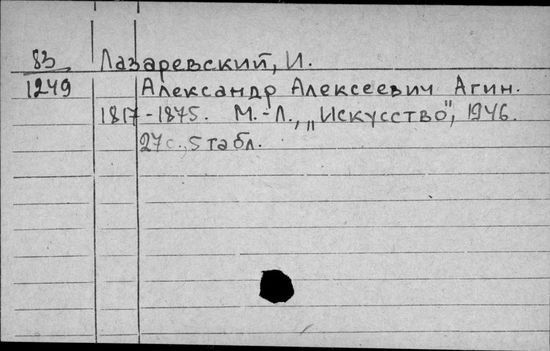 83 Лазаревский, И.
1249 Александр Алексеевич Агин.
1817-1875. М.-Л., „Искусство", 1946.
27с., 5 табл.